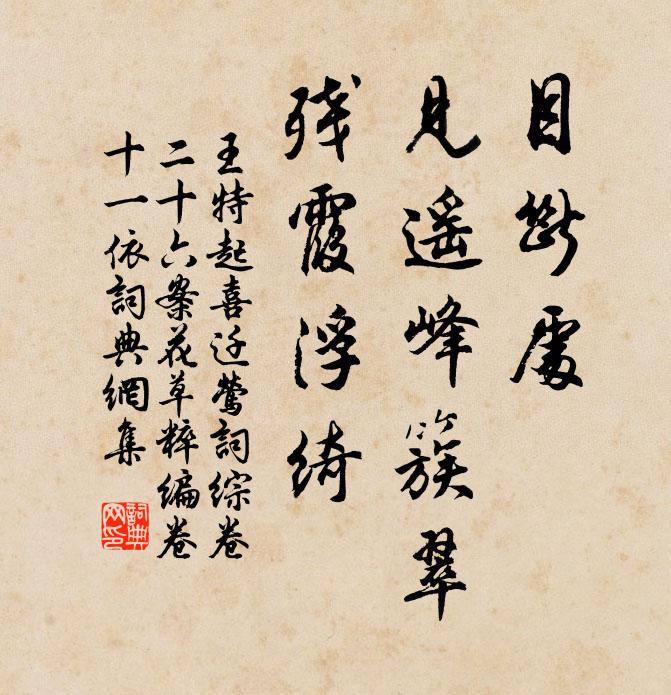 目断處
見遥峰簇翠
残霞浮綺
王特起喜迁鶯詞综卷
二十六案花草粹编卷
十一依詞典網集
詞典
网印